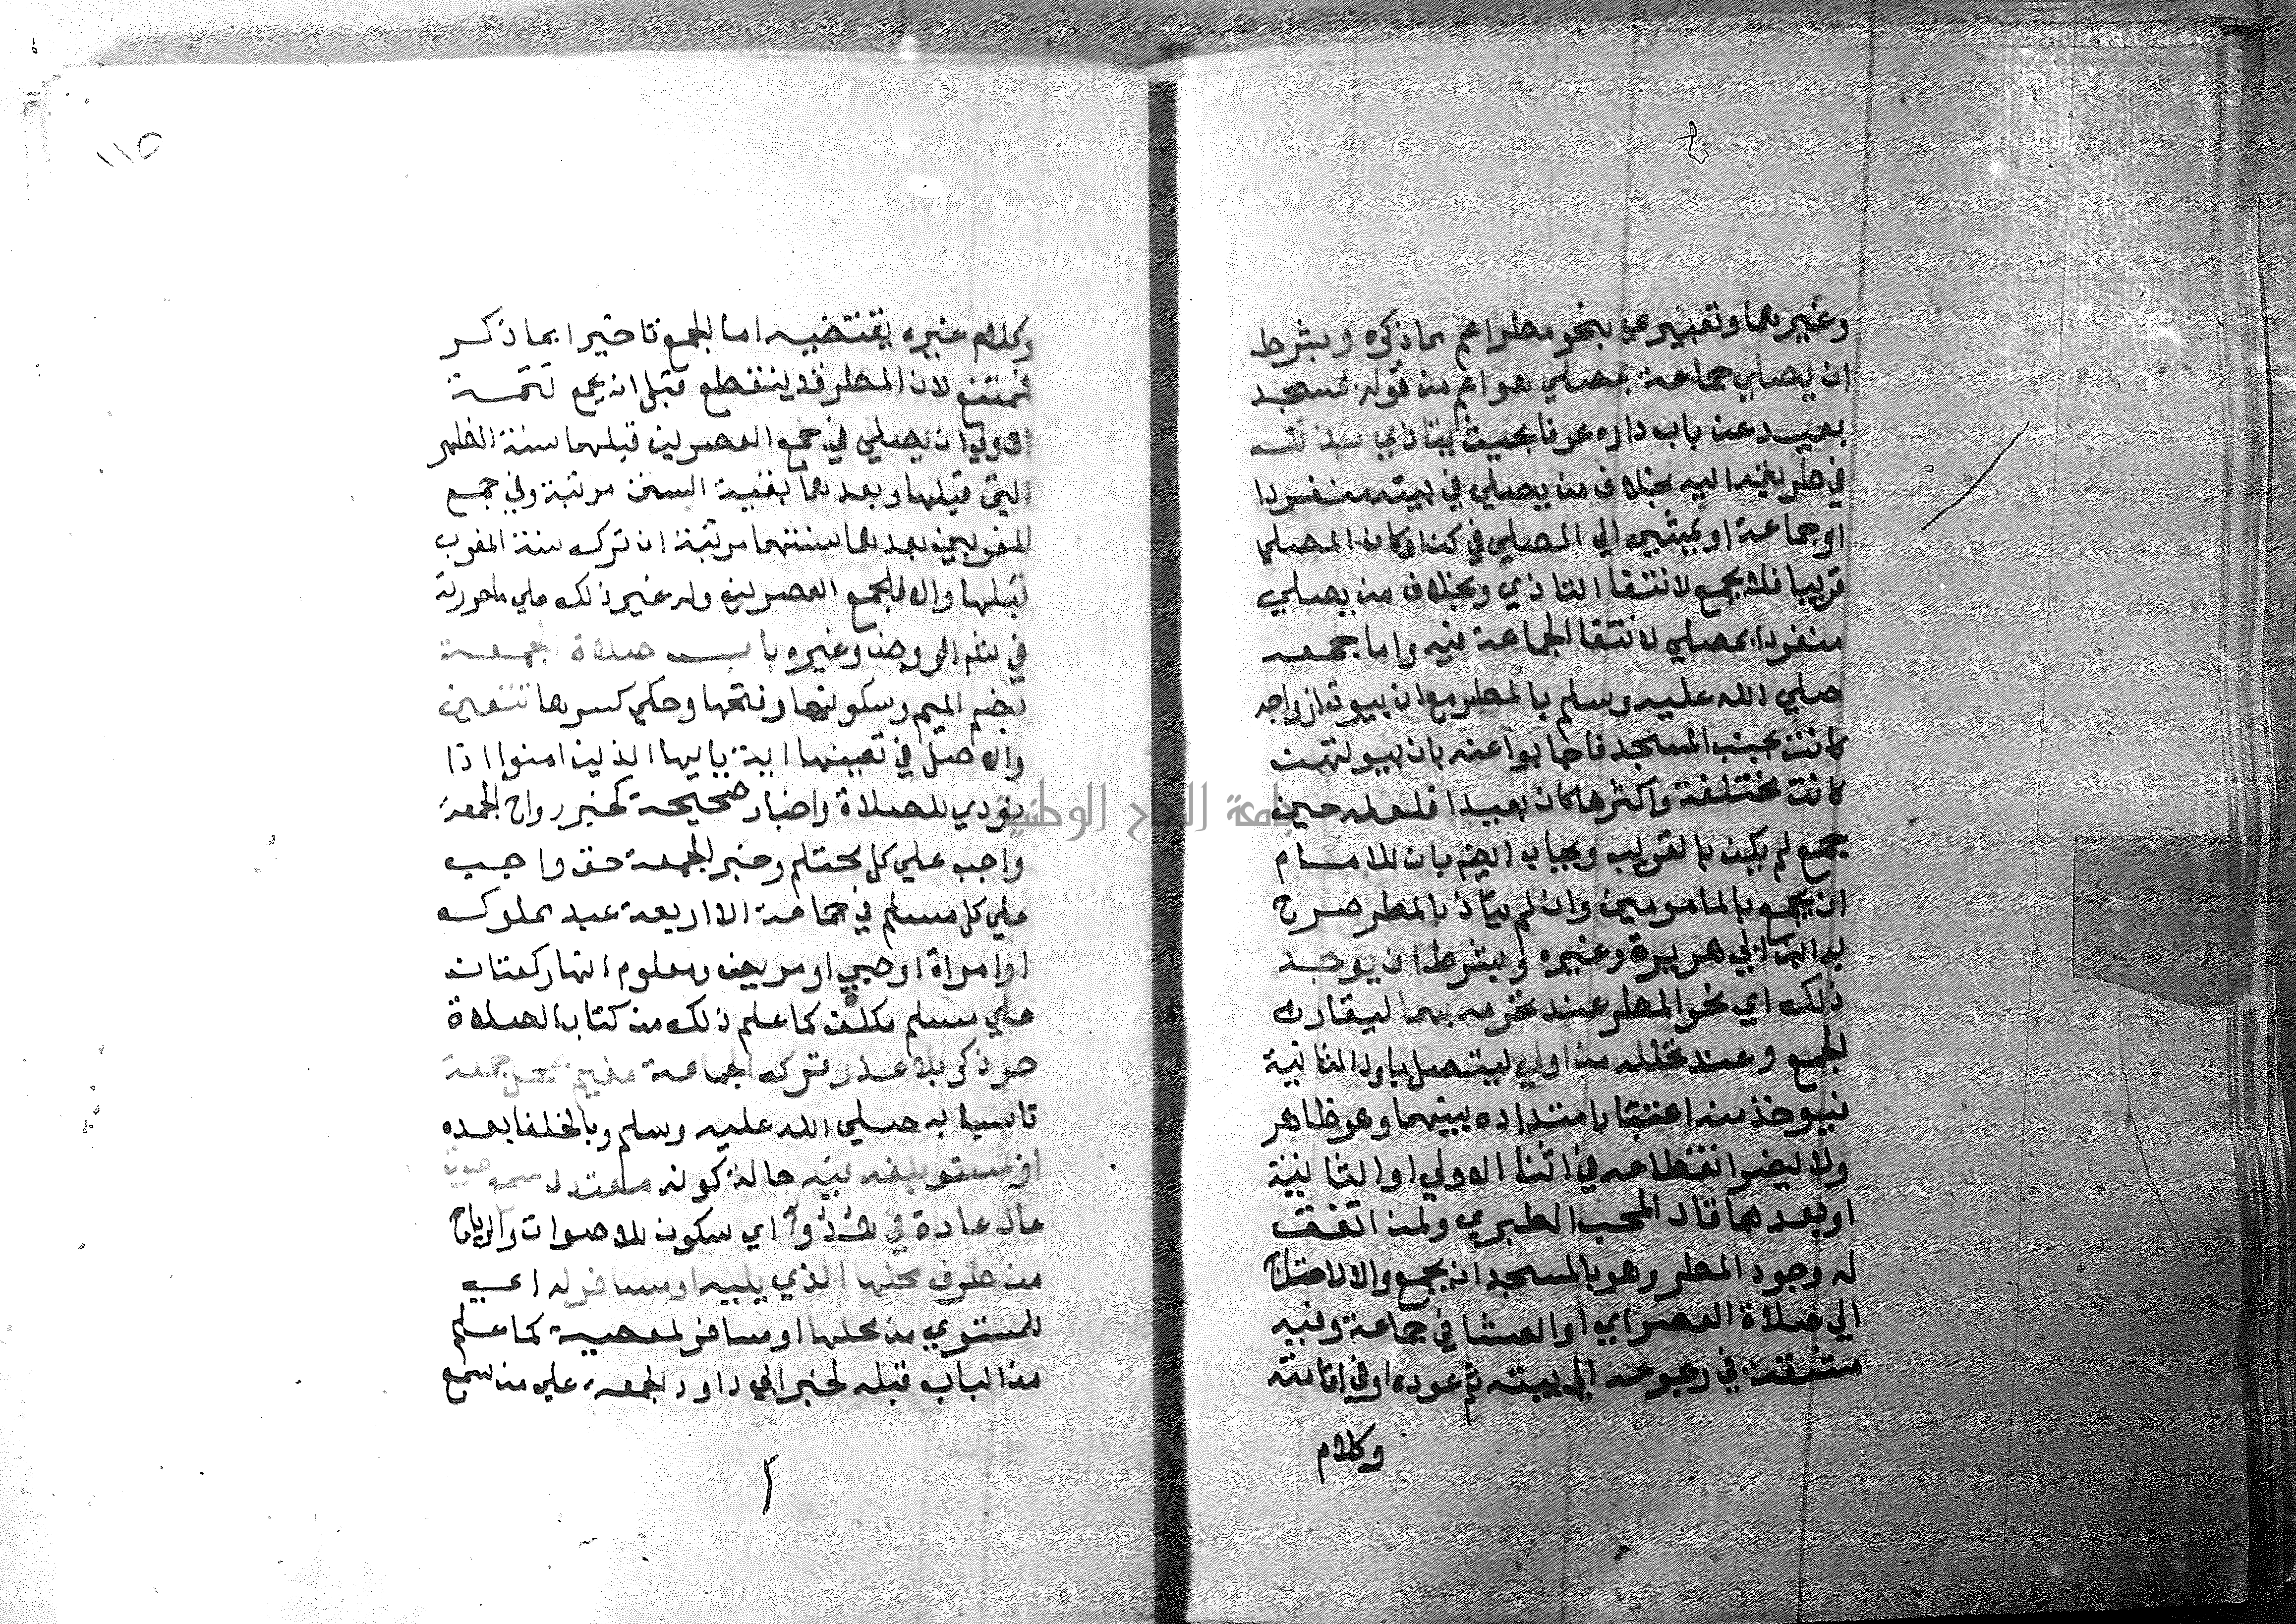 وغيرهما وتعبيري بنحو مطر اعم مما ذكره وبشرط
ان يصلي جماعة بمصلي هو اعم من قوله بمسجد
بعيد عن باب داره عرفا بحيث يتاذي بذلك
في طريقه اليه بخلاف من يصلي في بيته منفردا
او جماعة او يمشي الي المصلي في كن او كان المصلي
قريبا فلا يجمع لانتفا التاذي وبخلاف من يصلي
منفردا بمصلي لانتفا الجماعة فيه واما جمعه
صلي الله عليه وسلم بالمطر مع ان بيوت ازواجه
كانت بجنب المسجد فاجابوا عنه بان بيوتهن
كانت مختلفة واكثرها كان بعيدا فلعله حين
جمع لم يكن بالقريب ويجاب ايضا بان للامام
ان يجمع بالمامومين وان لم يتاذ بالمطر صرح
به ابن ابي هريرة وغيره وبشرط ان يوجد
ذلك اي نحو المطر عند تحرمه بهما ليقارن
الجمع وعند تحلله من اولي ليتصل باول الثانية
فيوخذ منه اعتبار امتداده بينهما وهو ظاهر
ولا يضر انقطاعه في اثنا الاولي او الثانية
او بعدهما قال المحب الطبري ولمن اتفق
له وجود المطر وهو بالمسجد ان يجمع والا لاحتاج
الي صلاة العصر اي او العشا في جماعة وفيه
مشقة في رجوعه الي بيته ثم عوده او في اقامته
وكلام
١١٥
وكلام غيره يقتضيه اما الجمع تاخيرا بما ذكر
فممتنع لان المطر قد ينقطع قبل ان يجمع تتمة
الاولي ان يصلي في جمع العصرين قبلهما سنة الظهر
التي قبلها وبعدهما بقية السنن مرتبة وفي جمع
المغربين بعدهما سنتهما مرتبة ان ترك سنة المغرب
قبلها والا فلجمع العصرين وله غير ذلك علي ما حررته
في شرح الروض وغيره باب صلاة الجمعة
بضم الميم وسكونها وفتحها وحكي كسرها تتعين
والاصل في تعينها اية يا ايها الذين امنوا اذا
نودي للصلاة واخبار صحيحة كخبر رواح الجمعة
واجب علي كل محتلم وخبر الجمعة حق واجب
علي كل مسلم في جماعة الا اربعة عبد مملوك
او امراة او صبي او مريض ومعلوم انها ركعتان
علي مسلم مكلف كما علم ذلك من كتاب الصلاة
حر ذكر بلا عذر ترك الجماعة مقيم بمحل جمعة
تاسيا به صلي الله عليه وسلم وبالخلفا بعده
او بمستو بلغه فيه حالة كونه معتدل سمع صوت
عال عادة في هدو اي سكون للاصوات والرياح
من طرف محلها الذي يليه او مسافر له اي
للمستوي من محلها او مسافر لمعصية كما علم
من الباب قبله لخبر ابي داود الجمعة علي من سمع